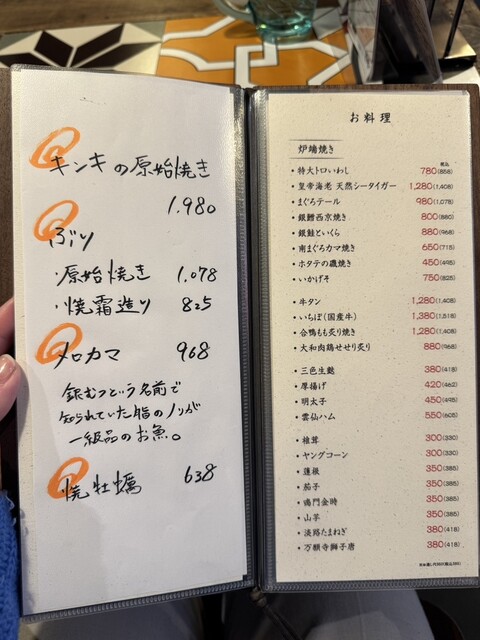 キンキの原始焼き
1.980
ぶり
・原始焼き 1.078
・焼霜造り 825
メロカマ 968
銀むつという名前で
知られていた脂のノリが
一級品のお魚。
焼牡蠣 638
お料理
炉端焼き
税込
・特大トロいわし 780(858)
・皇帝海老 天然シータイガー 1,280(1,408)
・まぐろテール 980(1,078)
・銀鱈西京焼き 800(880)
・銀鮭といくら 880(968)
・南まぐろカマ焼き 650(715)
・ホタテの磯焼き 450(495)
・いかげそ 750(825)
・牛タン 1,280(1,408)
・いちぼ(国産牛) 1,380(1,518)
・合鴨もも炙り焼き 1,280(1,408)
・大和肉鶏せせり炙り 880(968)
・三色生麩 380(418)
・厚揚げ 420(462)
・明太子 450(495)
・雲仙ハム 550(605)
・椎茸 300(330)
・ヤングコーン 300(330)
・蓮根 350(385)
・茄子 350(385)
・鳴門金時 350(385)
・山芋 350(385)
・淡路たまねぎ 380(418)
・万願寺獅子唐 380(418)